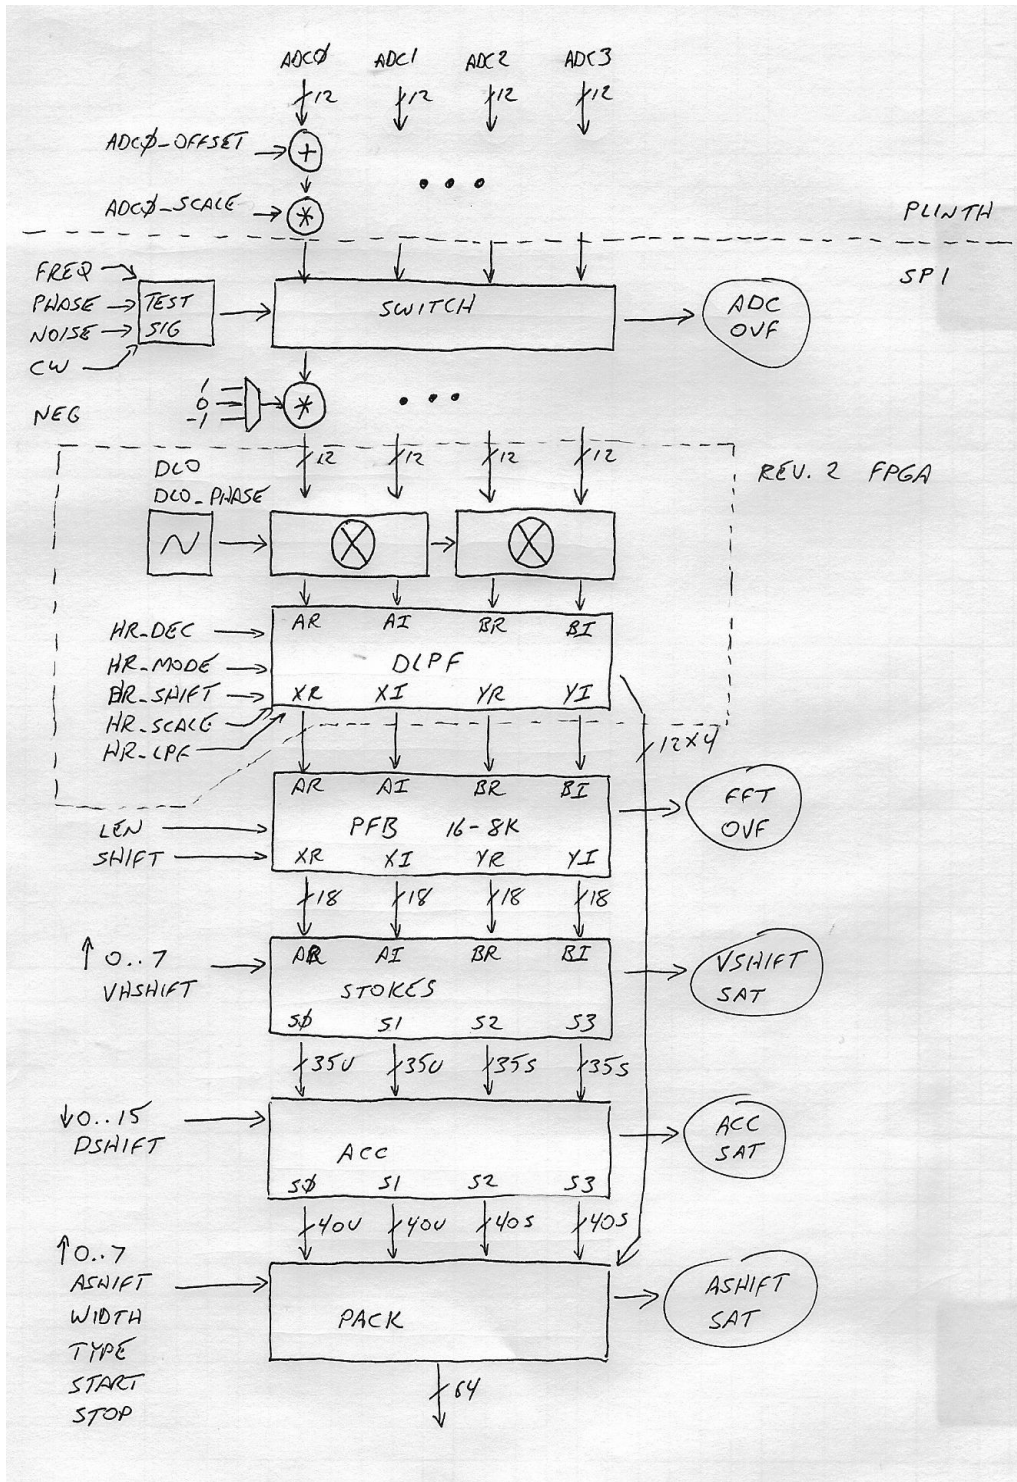 ADCØ ADC1 ADC2 ADC3
12 12 12 12
ADCØ_OFFSET +
ADCØ_SCALE *
PLINTH
SP1
FREQ
PHASE
NOISE
CW
TEST
SIG
SWITCH
ADC
OVF
NEG
1
0
-1
*
12 12 12 12
REV. 2 FPGA
DLO
DLO_PHASE
AR AI BR BI
DLPF
XR XI YR YI
HR_DEC
HR_MODE
HR_SHIFT
HR_SCALE
HR_LPF
12X4
AR AI BR BI
PFB 16-8K
XR XI YR YI
LEN
SHIFT
FFT
OVF
18 18 18 18
↑ 0..7
VHSHIFT
AR AI BR BI
STOKES
SØ S1 S2 S3
VSHIFT
SAT
35U 35U 35S 35S
↓0..15
DSHIFT
ACC
SØ S1 S2 S3
ACC
SAT
40U 40U 40S 40S
↑0..7
ASHIFT
WIDTH
TYPE
START
STOP
PACK
ASHIFT
SAT
64